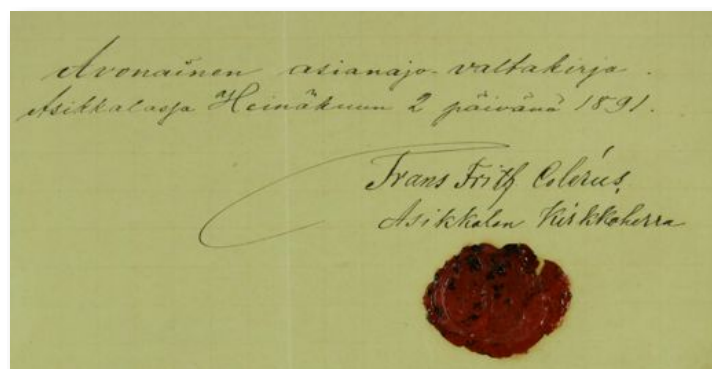 Avonainen asianajo-valtakirja.
Asikkalassa Heinäkuun 2 päivänä 1891.
Frans Frith Colérus,
Asikkalan Kirkkoherra